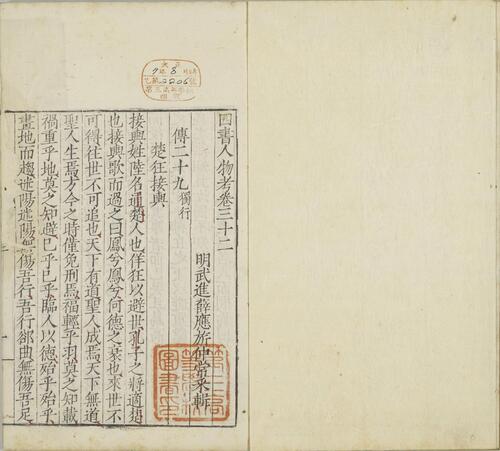 四書人物考卷三十二
明武進薛應旂仲常采輯
傳二十九 獨行
楚狂接輿
接輿姓陸名通楚人也佯狂以避世孔子之將適楚
也接輿歌而過之曰鳳兮鳳兮何德之衰也來世不
可得往世不可追也天下有道聖人成焉天下無道
聖人生焉方今之時僅免刑焉福輕乎羽莫之知載
禍重乎地莫之知避已乎已乎臨人以德殆乎殆乎
畫地而趨迷陽迷陽無傷吾行吾行郤曲無傷吾足
8
2206